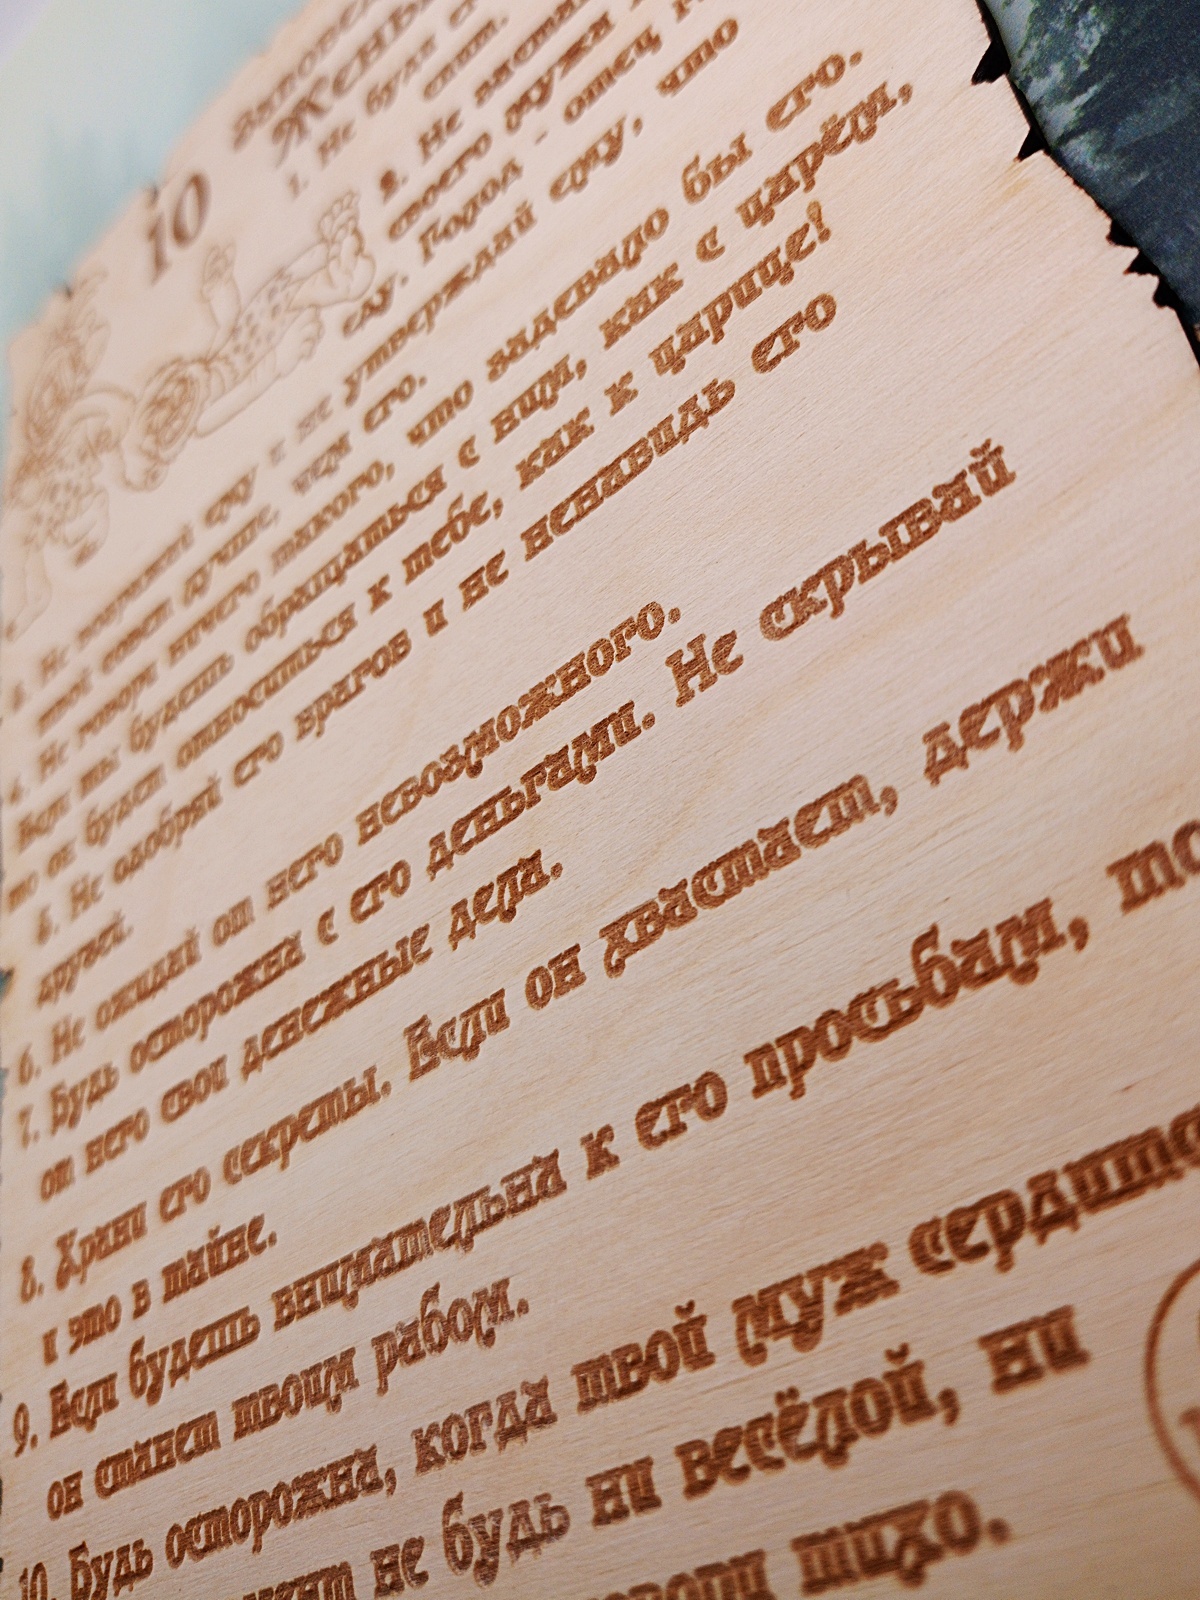 10 Заповедей
Жены
1. Не буди
спит.
2. Не
своего мужа
еду. Голод - отец
3. Не возражай ему и не утверждай ему, что
твой совет лучше, чем его.
4. Не говори ничего такого, что задевало бы его.
Если ты будешь обращаться с ним, как с царём,
то он будет относиться к тебе, как к царице!
5. Не одобряй его врагов и не ненавидь его
друзей.
6. Не ожидай от него невозможного.
7. Будь осторожна с его деньгами. Не скрывай
от него свои денежные дела.
8. Храни его секреты. Если он хвастает, держи
и это в тайне.
9. Если будешь внимательна к его просьбам, то
он станет твоим рабом.
10. Будь осторожна, когда твой муж
не будь ни весёлой, ни
тихо.